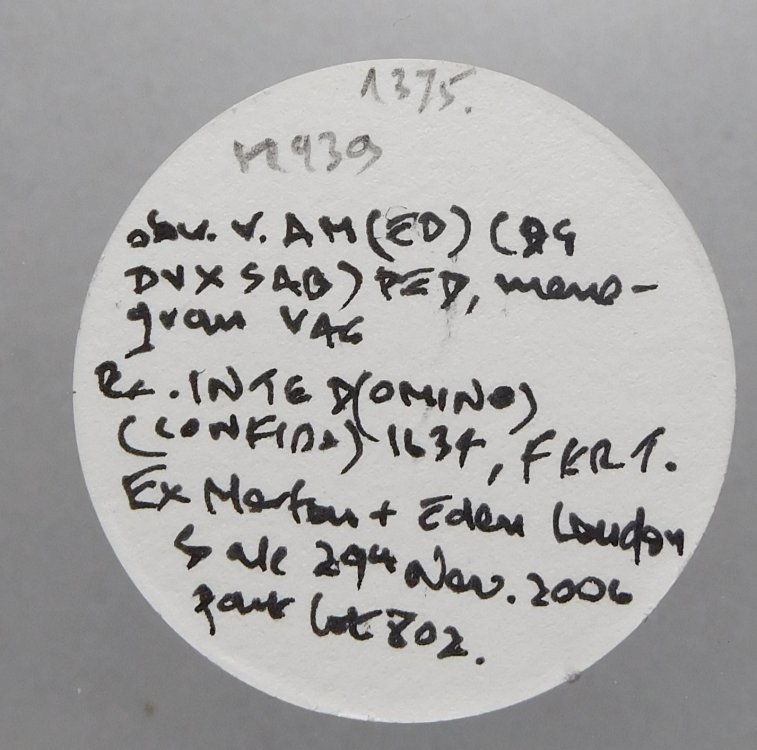 1375.
M939
obv. V. AM(ED) (DG
DVX SAB) PED, mono-
gram VAG
Rx. IN TE D(OMINO)
(CONFIDO) 1634, FERT.
Ex Morton + Eden London
Sale 29th Nov. 2006
part lot 802.